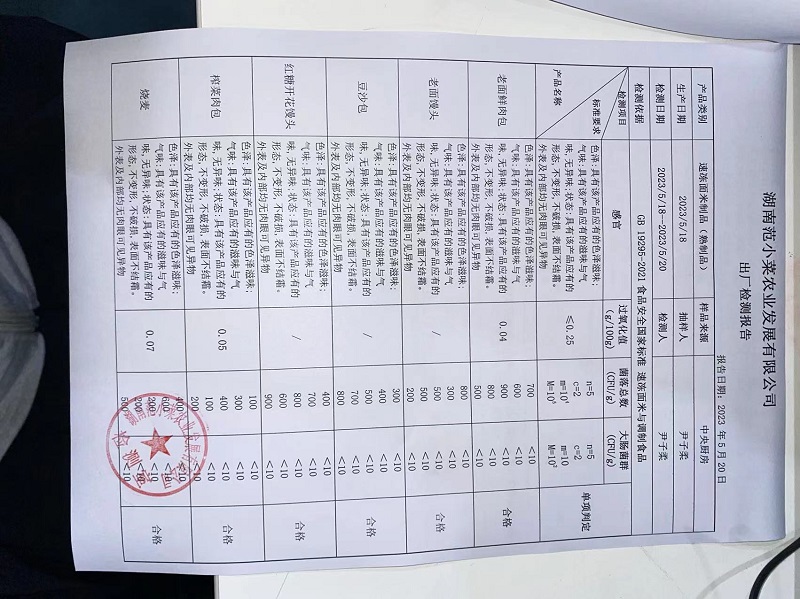 湖南范小菜农业发展有限公司
出厂检测报告
报告日期: 2023 年 5 月 20 日
产品类别 速冻面米制品（熟制品） 样品来源 中央厨房
生产日期 2023/5/18 抽样人 尹子柔
检测日期 2023/5/18—2023/5/20 检测人 尹子柔
检测依据 GB 19295-2021 食品安全国家标准 速冻面米与调制食品
检测项目 感官 过氧化值 (g/100g) 菌落总数 (CFU/g) 大肠菌群 (CFU/g) 单项判定
标准要求
产品名称
色泽:具有该产品应有的色泽滋味;
气味:具有该产品应有的滋味与气
味,无异味;状态:具有该产品应有的
形态,不变形,不破损,表面不结霜。
外表及内部均无肉眼可见异物
≤0.25
n=5
c=2
m=10⁴
M=10⁵
n=5
c=2
m=10
M=10²
老面鲜肉包
色泽:具有该产品应有的色泽滋味;
气味:具有该产品应有的滋味与气
味,无异味;状态:具有该产品应有的
形态,不变形,不破损,表面不结霜。
外表及内部均无肉眼可见异物
0.04
700 <10
600 <10
900 <10
800 <10
500 <10
合格
老面馒头
色泽:具有该产品应有的色泽滋味;
气味:具有该产品应有的滋味与气
味,无异味;状态:具有该产品应有的
形态,不变形,不破损,表面不结霜。
外表及内部均无肉眼可见异物
/
800 <10
300 <10
500 <10
500 <10
200 <10
合格
豆沙包
色泽:具有该产品应有的色泽滋味;
气味:具有该产品应有的滋味与气
味,无异味;状态:具有该产品应有的
形态,不变形,不破损,表面不结霜。
外表及内部均无肉眼可见异物
/
300 <10
400 <10
500 <10
700 <10
800 <10
合格
红糖开花馒头
色泽:具有该产品应有的色泽滋味;
气味:具有该产品应有的滋味与气
味,无异味;状态:具有该产品应有的
形态,不变形,不破损,表面不结霜。
外表及内部均无肉眼可见异物
/
400 <10
700 <10
800 <10
600 <10
900 <10
合格
榨菜肉包
色泽:具有该产品应有的色泽滋味;
气味:具有该产品应有的滋味与气
味,无异味;状态:具有该产品应有的
形态,不变形,不破损,表面不结霜。
外表及内部均无肉眼可见异物
0.05
100 <10
300 <10
400 <10
100 <10
200 <10
合格
烧麦
色泽:具有该产品应有的色泽滋味;
气味:具有该产品应有的滋味与气
味,无异味;状态:具有该产品应有的
形态,不变形,不破损,表面不结霜。
外表及内部均无肉眼可见异物
0.07
400 <10
600 <10
200 <10
200 <10
500 <10
合格